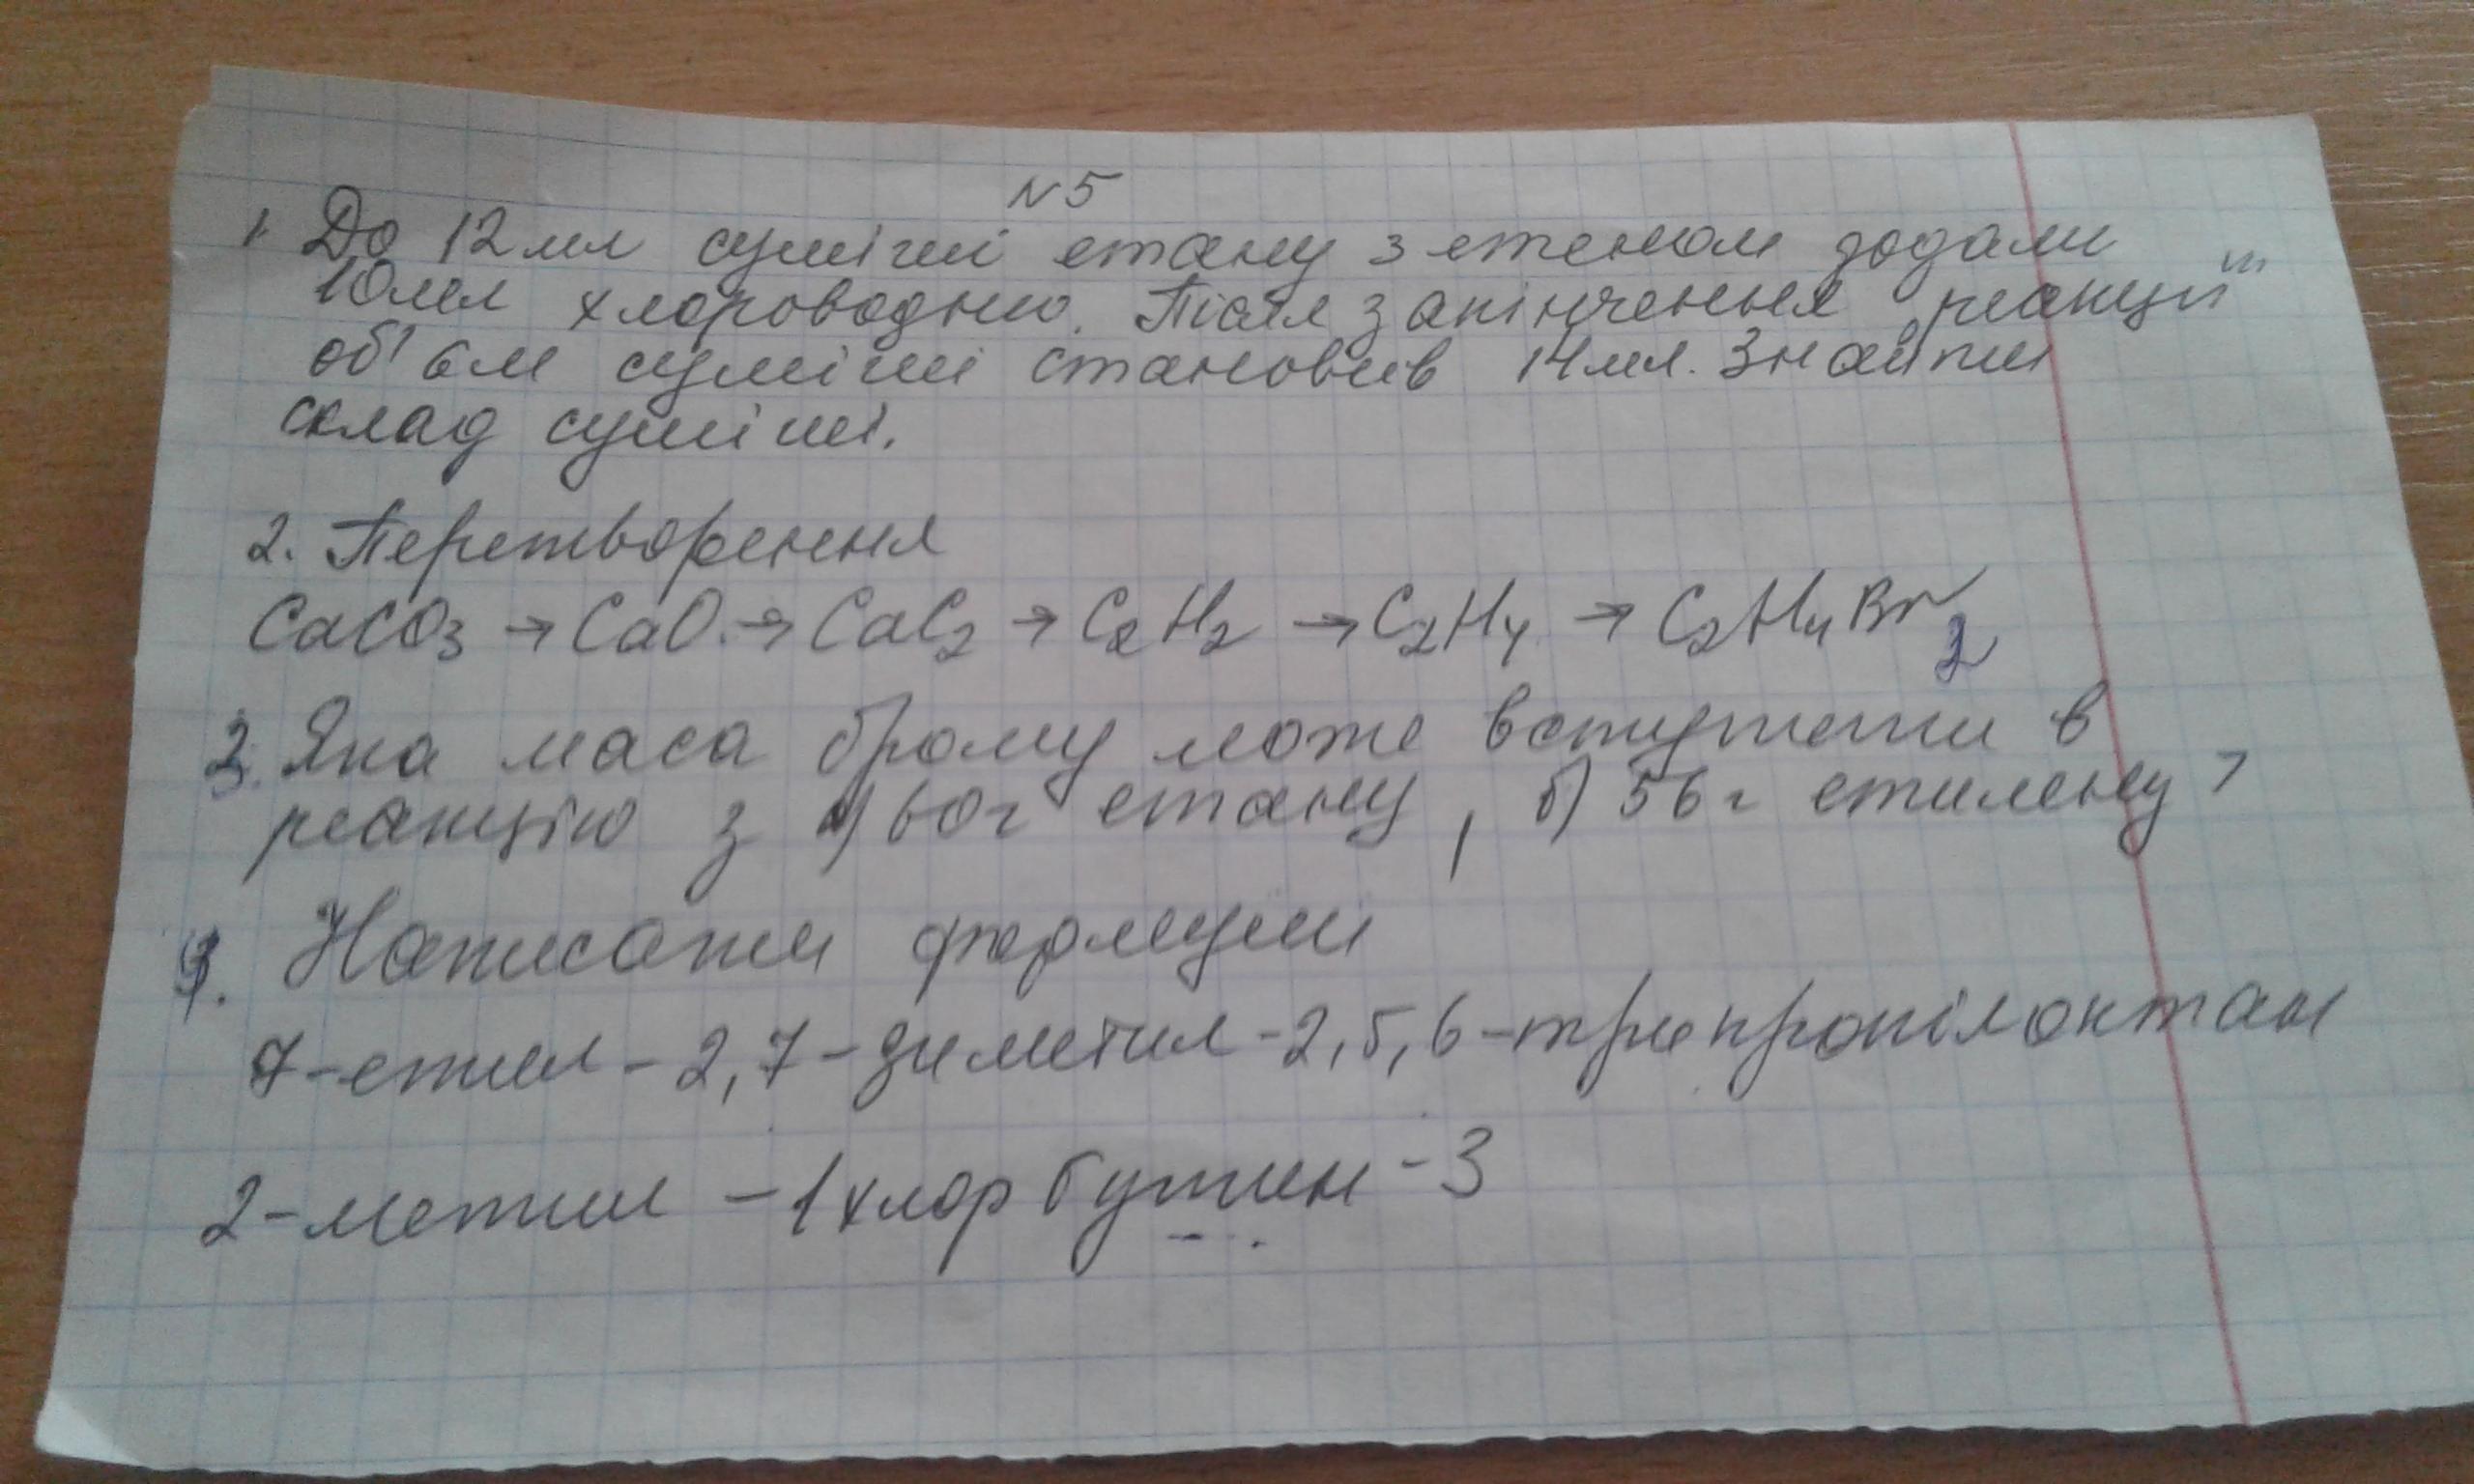 №5
1. До 12 мл суміші етану з етеном додали
10мл хлороводню. Після закінчення реакції
об'єм суміші становив 14мл. Знайти
склад суміші.
2. Перетворення
CaCO3 → CaO → CaC2 → C2H2 → C2H4 → C2H4Br2
3. Яка маса брому може вступити в
реакцію з а) 60г етану, б) 56г етилену?
4. Написати формули
7-етил-2,7-диметил-2,5,6-трипропілоктан
2-метил-1хлорбутин-3